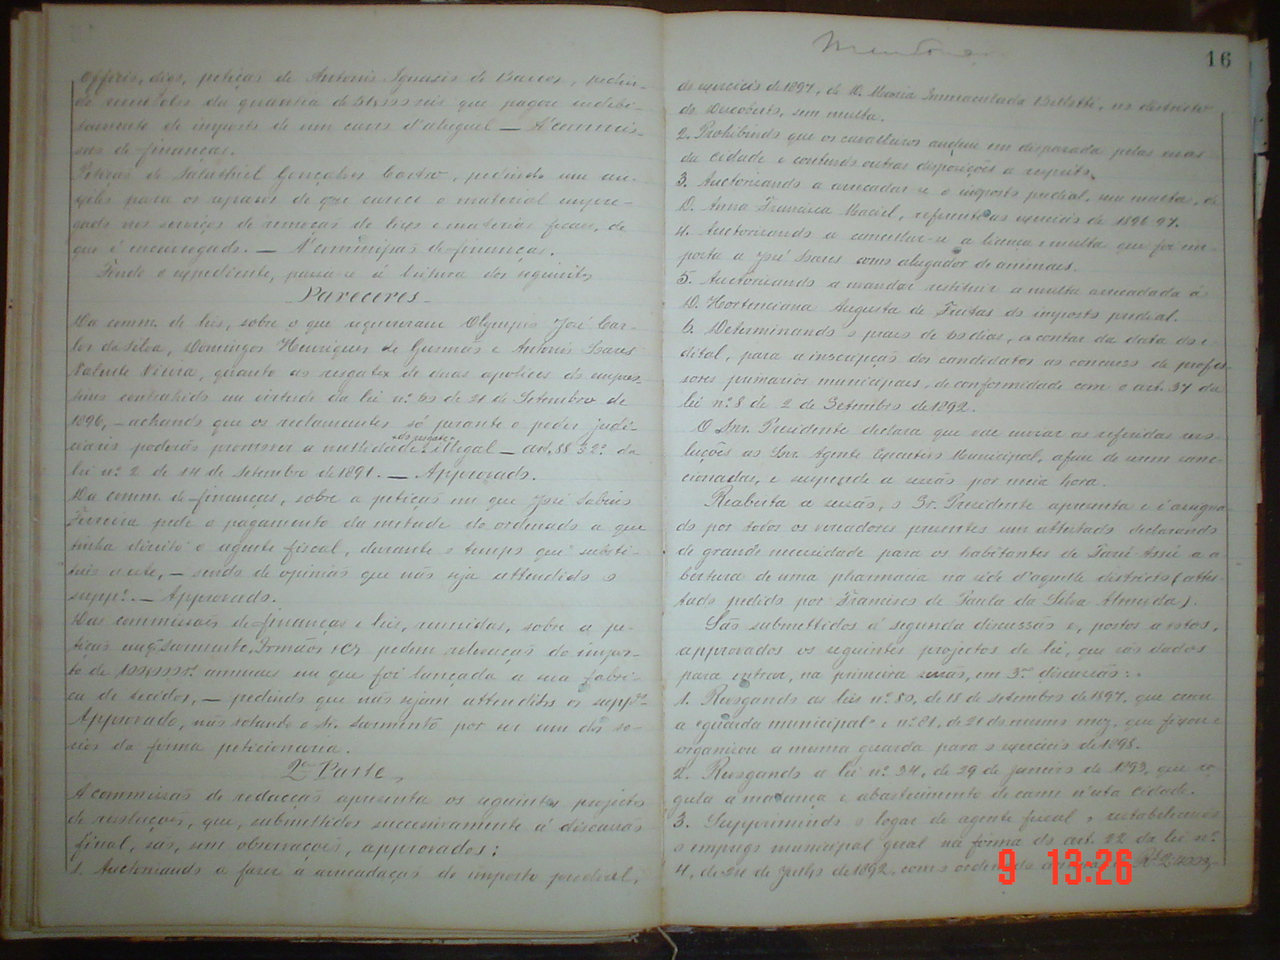 Officio, digo, petição de Antonio Ignacio de Barros, pedin-
do da quantia de que pagou indebi-
tamente de imposto de um carro d'aluguel — Á commis-
são de finanças.
Petição de Salathiel Gonçalves Castro, pedindo um au-
xilio para os reparos de que carece o material empre-
gado nos serviços de remoção de lixo e materias fecaes, de
que é encarregado. — Á commissão de finanças.
Findo o expediente, passa-se á leitura dos seguintes
Pareceres
Da comm. de leis, sobre o que requereram Olympio José Car-
los da Silva, Domingos Henriques de Gusmão e Antonio Soares
Valente Vieira, quanto ao resgate de duas apolices do empres-
timo contrahido em virtude da lei nº 40 de 21 de Setembro de
1896, — achando que os reclamantes só perante o poder judi-
ciario poderão promover a nullidade do resgate illegal — art. 32º da
lei nº 2 de 14 de Setembro de 1891. — Approvado.
Da comm. de finanças, sobre a petição em que José Sabino
Ferreira pede o pagamento da metade do ordenado a que
tinha direito o agente fiscal, durante o tempo que substi-
tuiu a este, — sendo de opinião que não seja attendido o
suppe. — Approvado.
Das commissões de finanças e leis, reunidas, sobre a pe-
tição em q Sarmento, Irmãos & Cª pedem relevação do impos-
to de annuaes em que foi lançada a sua fabri-
ca de tecidos, — pedindo que não sejam attendidos os suppes
Approvado, não votando o Sr. Sarmento por ser um dos so-
cios da firma peticionaria.
2ª Parte
A commissão de redacção apresenta os seguintes projectos
de resoluções, que, submettidos successivamente á discussão
final, são, sem observações, approvados:
1. Auctorisando a fazer a arrecadação do imposto predial,
16
do exercicio de 1897, de D. Maria Immaculada Belletti, no districto
do Descoberto, sem multa.
2. Prohibindo que os cavalleiros andem em disparada pelas ruas
da cidade e contendo outras disposições a respeito.
3. Auctorisando a arrecadar-se o imposto predial, sem multas, de
D. Anna Francisca Maciel, referente ao exercicio de 1896-97.
4. Auctorisando a cancellar-se a licença e multa que foi im-
posta a José Soares como alugador de animaes.
5. Auctorisando a mandar restituir a multa arrecadada á
D. Hortenciana Augusta de Freitas do imposto predial.
6. Determinando o praso de 60 dias, a contar da data do e-
dital, para a inscripção dos candidatos ao concurso de profes-
sores primarios municipaes, de conformidade com o art. 37 da
lei nº 8 de 2 de Setembro de 1892.
O Snr. Presidente declara que vae enviar as referidas reso-
luções ao Snr. Agente Executivo Municipal, afim de serem sanc-
cionadas, e suspende a sessão por meia hora.
Reaberta a sessão, o Sr. Presidente apresenta e é assigna-
do por todos os vereadores presentes um attestado declarando
de grande necessidade para os habitantes de Taru-Assú a a
bertura de uma pharmacia na séde d'aquelle districto (attes-
tado pedido por Francisco de Paula da Silva Almeida).
São submettidos á segunda discussão e, postos a votos,
approvados os seguintes projectos de lei, que são dados
para entrar, na primeira sessão, em 3ª discussão:
1. Revogando as leis nº 80, de 18 de setembro de 1897, que creou
a "guarda municipal" e nº 81, de 21 do mesmo mez, que fixou e
organisou a mesma guarda para o exercicio de 1898.
2. Revogando a lei nº 34, de 29 de janeiro de 1893, que re-
gula a matança e abastecimento de carne n'esta cidade.
3. Supprimindo o logar de agente fiscal e restabelecendo
o emprego municipal geral na forma do art. 22 da lei nº
4, de 20 de Julho de 1892, com o ordenado de
9 13:26